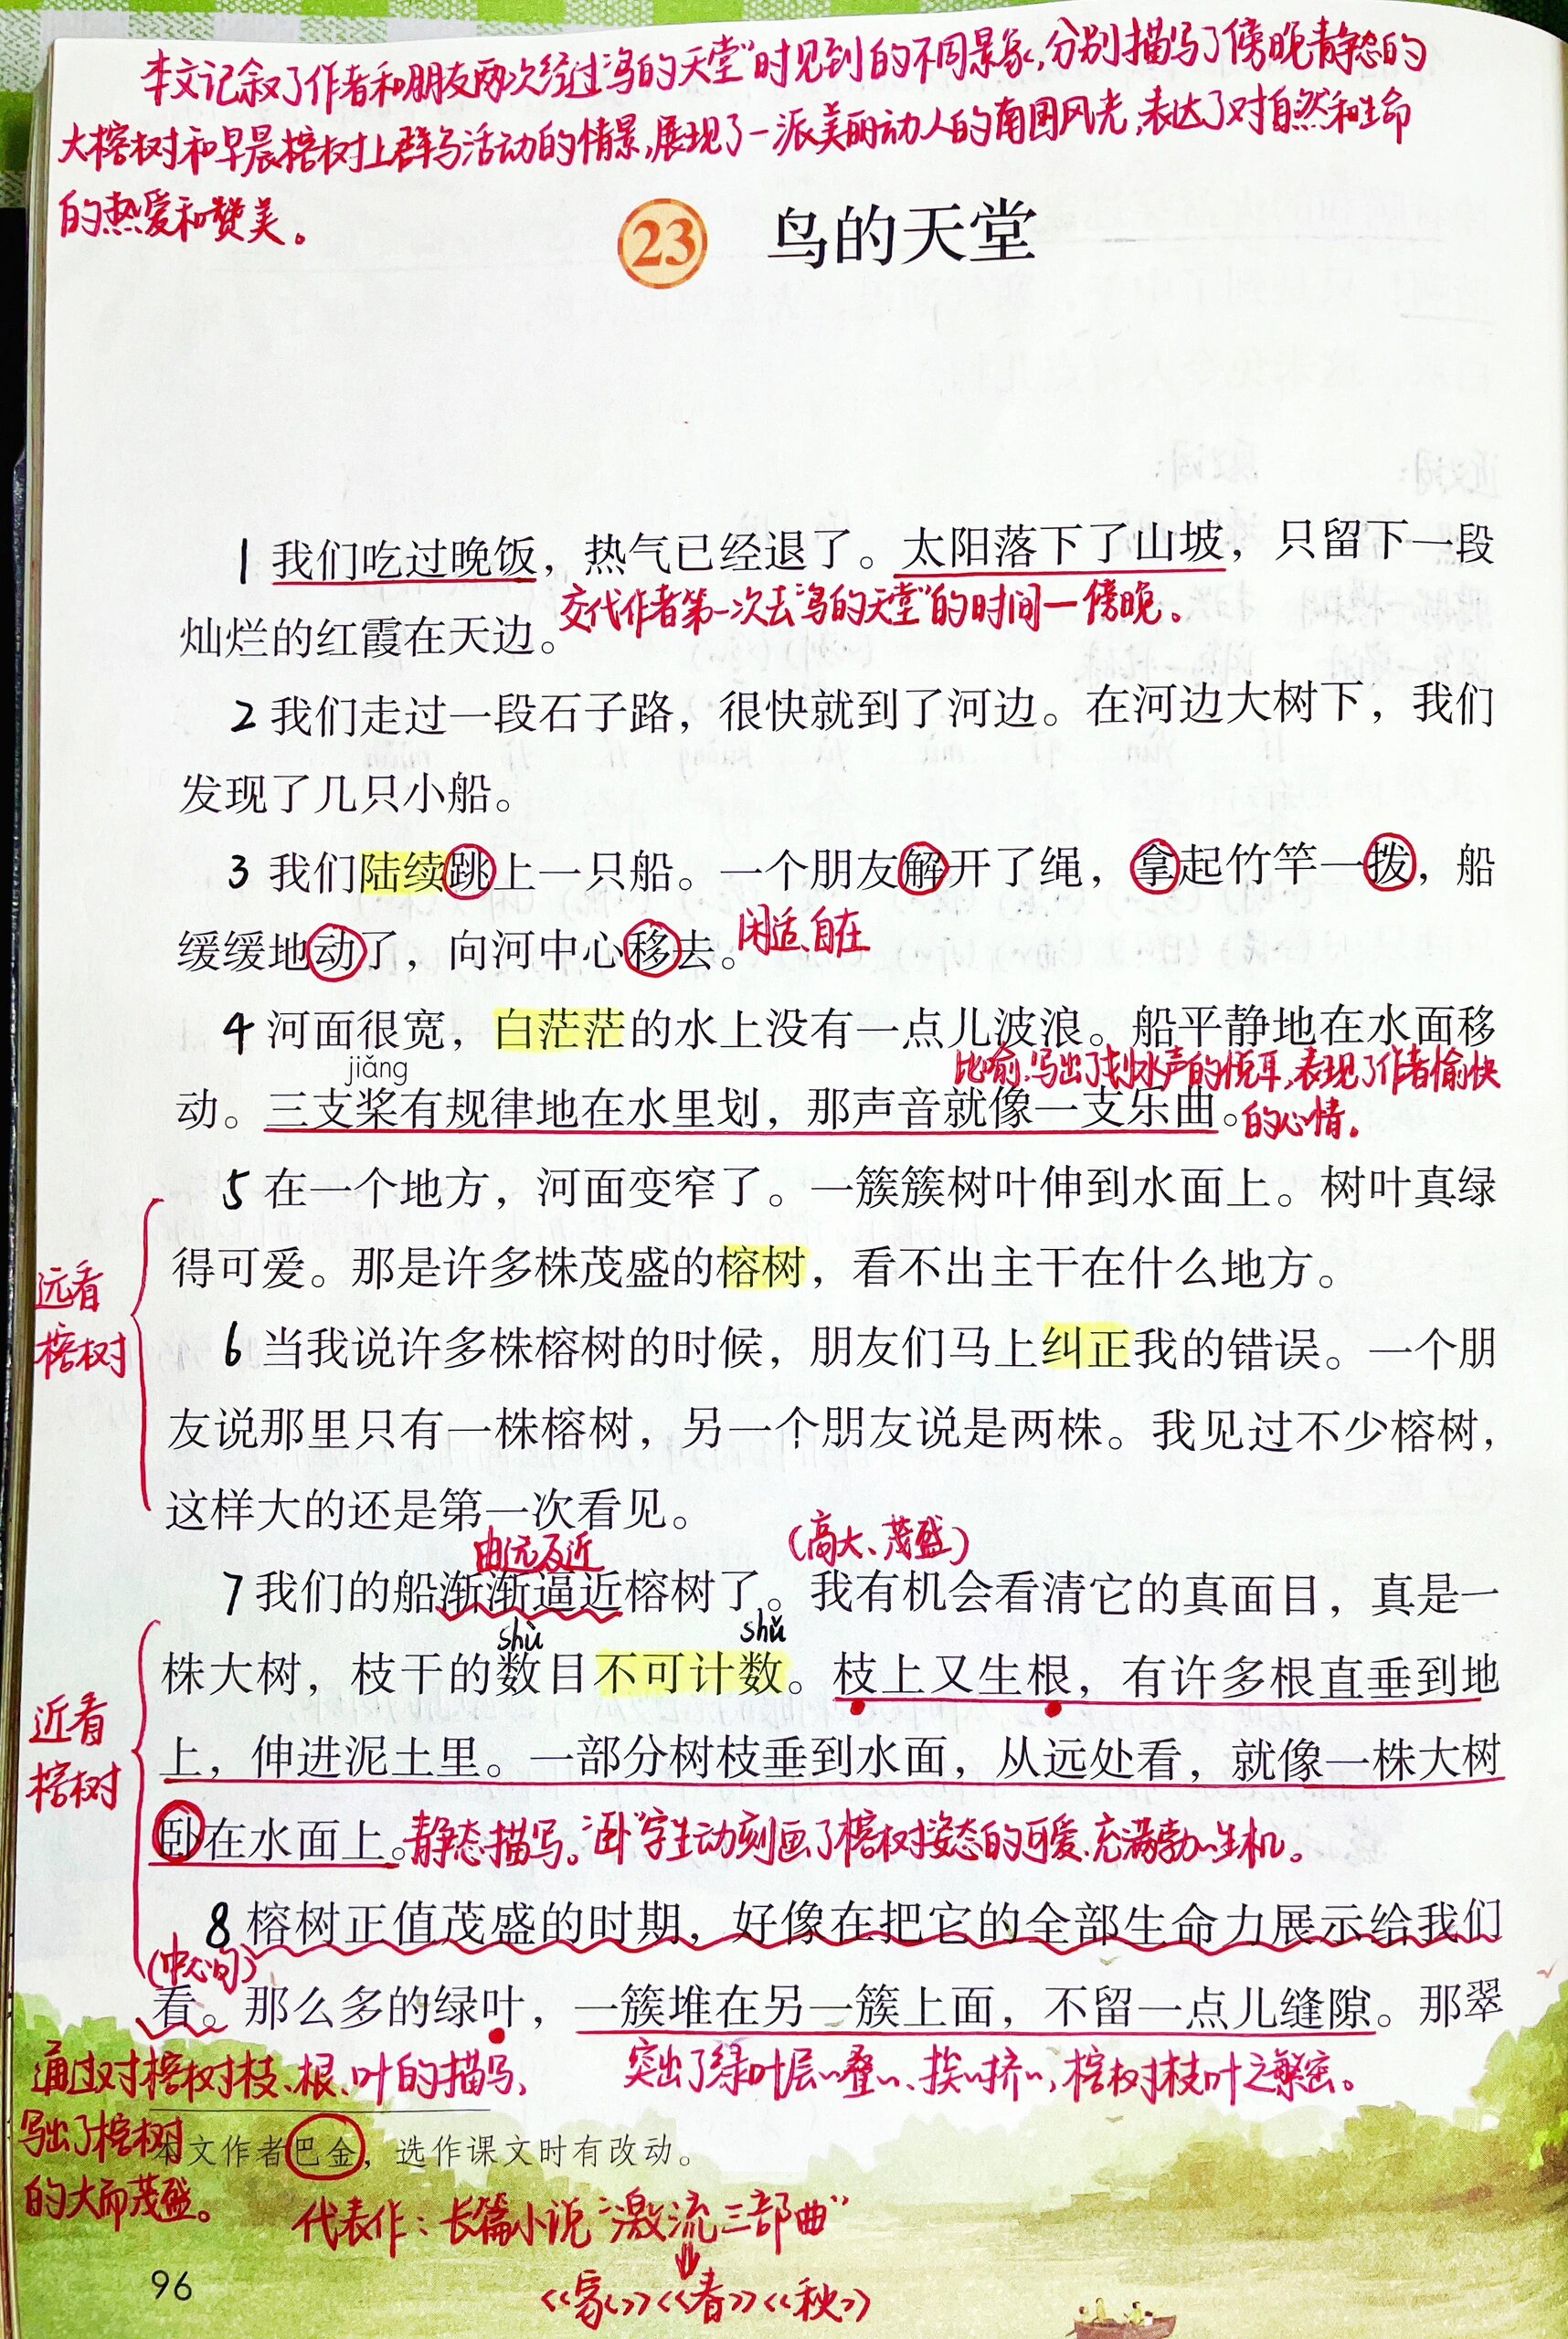 本文记叙了作者和朋友两次经过“鸟的天堂”时见到的不同景象,分别描写了傍晚静态的
大榕树和早晨榕树上群鸟活动的情景,展现了一派美丽动人的南国风光,表达了对自然和生命
的热爱和赞美。
23 鸟的天堂
1 我们吃过晚饭，热气已经退了。太阳落下了山坡，只留下一段
交代作者第一次去“鸟的天堂”的时间—傍晚。
灿烂的红霞在天边。
2 我们走过一段石子路，很快就到了河边。在河边大树下，我们
发现了几只小船。
3 我们陆续跳上一只船。一个朋友解开了绳，拿起竹竿一拨，船
缓缓地动了，向河中心移去。
闲适、自在
4 河面很宽，白茫茫的水上没有一点儿波浪。船平静地在水面移
jiǎng
比喻,写出了划水声的悦耳,表现了作者愉快
的心情。
动。三支桨有规律地在水里划，那声音就像一支乐曲。
5 在一个地方，河面变窄了。一簇簇树叶伸到水面上。树叶真绿
得可爱。那是许多株茂盛的榕树，看不出主干在什么地方。
远看
榕树
6 当我说许多株榕树的时候，朋友们马上纠正我的错误。一个朋
友说那里只有一株榕树，另一个朋友说是两株。我见过不少榕树，
这样大的还是第一次看见。
由远及近
(高大、茂盛)
7 我们的船渐渐逼近榕树了。我有机会看清它的真面目，真是一
shù shǔ
株大树，枝干的数目不可计数。枝上又生根，有许多根直垂到地
近看
榕树
上，伸进泥土里。一部分树枝垂到水面，从远处看，就像一株大树
卧在水面上。
静态描写。“卧”字生动刻画了榕树姿态的可爱、充满勃勃生机。
8 榕树正值茂盛的时期，好像在把它的全部生命力展示给我们
(中心句)
看。那么多的绿叶，一簇堆在另一簇上面，不留一点儿缝隙。那翠
通过对榕树枝、根、叶的描写,
写出了榕树
的大而茂盛。
突出了绿叶层层叠叠、挨挨挤挤,榕树枝叶之繁密。
本文作者巴金，选作课文时有改动。
代表作：长篇小说“激流三部曲”
《家》《春》《秋》
96